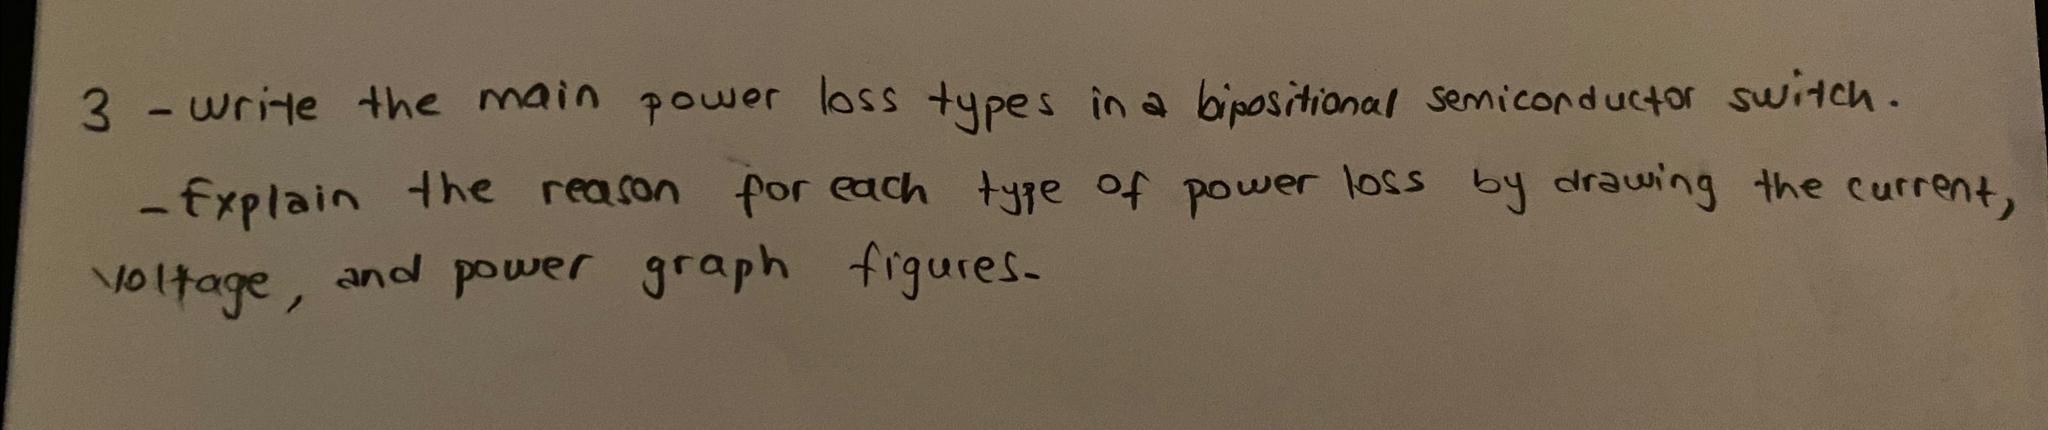 3 - write the main power loss types in a bipositional semiconductor switch.
- Explain the reason for each type of power loss by drawing the current,
voltage, and power graph figures-